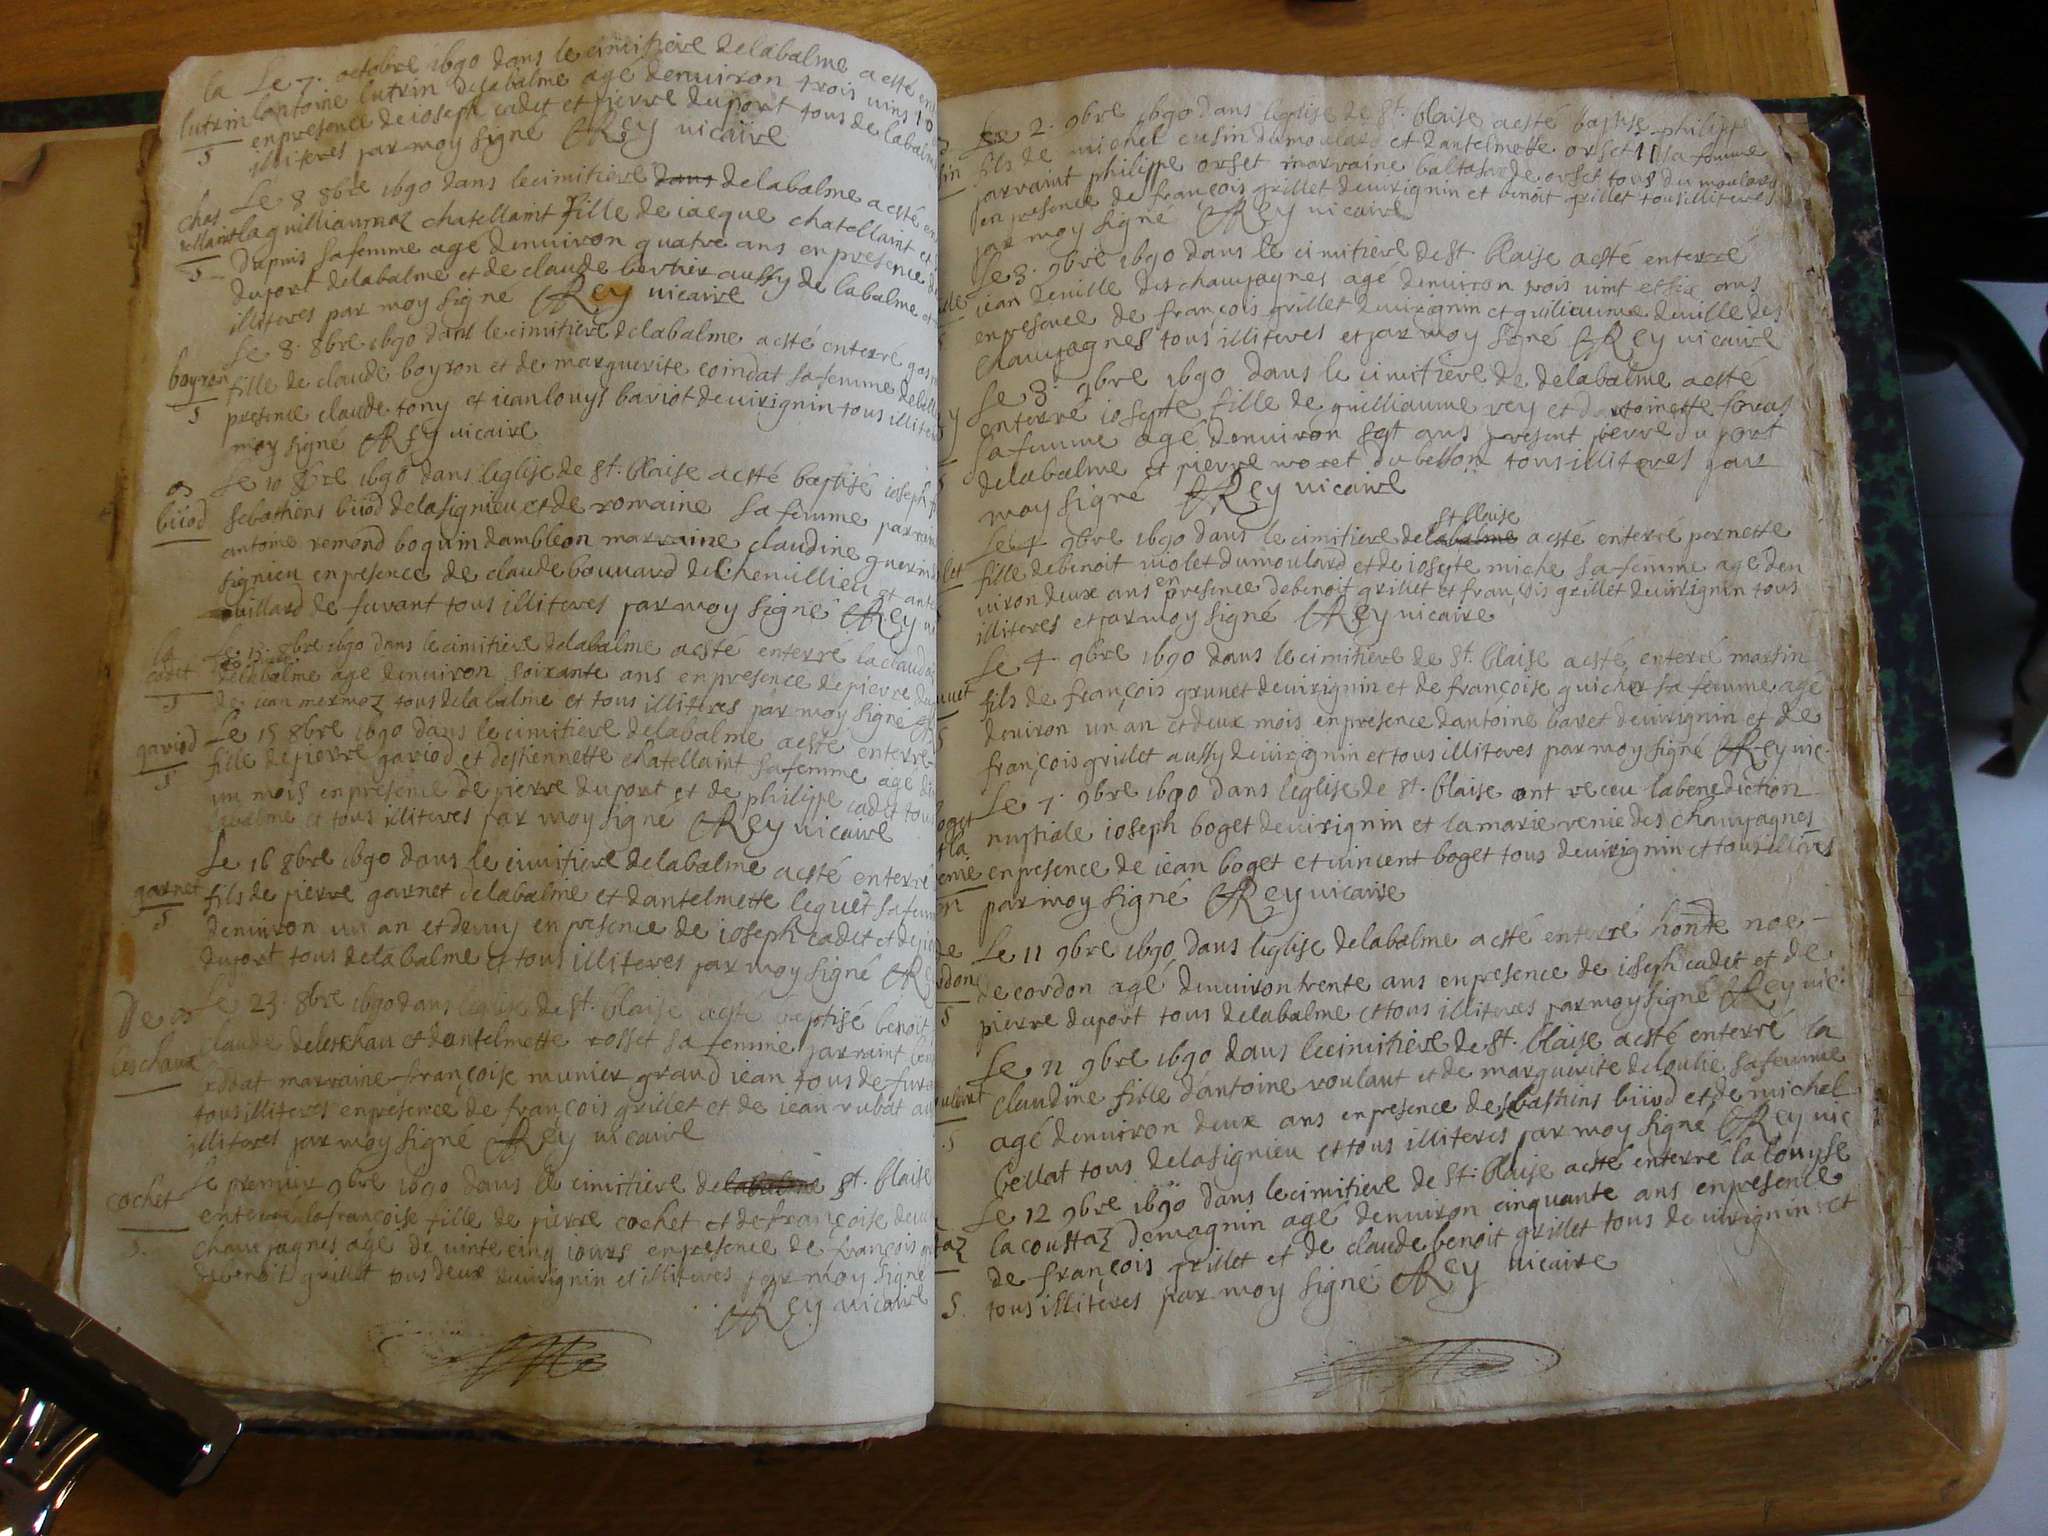 la Le 7. octobre 1690 dans le cimitiere delabalme a esté en
lutrin lantoine lutrin delabalme agé denuiron trois uins 10
enpresence de ioseph cadet et pierre duport tous de labalm
S illiteres par moy signé Rey uicaire
Le 8 8bre 1690 dans lecimitiere dans delabalme a esté en
chas
tellaint la guilliaurnaz chatellaint fille de iacque chatellaint et
S dupuis safemme agé denuiron quatre ans en presence de
duport delabalme et de claude bertier aussy de labalme et
illiteres par moy signé Rey uicaire
Le 8. 8bre 1690 dans le cimitiere delabalme a esté enterré
boyron fille de claude boyron et de marguerite coindat safemme delaba
S presence claude tony et ieanlouys bariot deuirignin tous illitere
moy signé Rey uicaire
Le 10 8bre 1690 dans leglise de St. blaise a esté baptisé ioseph
biiod sebastiens biiod delasignieu et de romaine sa femme parrain
antoine remond boquin dambleon marraine claudine
signieu en presence de claude bouuard de Cheuillieu et anto
de furant tous illiteres par moy signé Rey
la Le 13. 8bre 1690 dans lecimitiere delabalme a esté enterré laclaud
cadet delabalme agé denuiron soixante ans en presence depierre du
S de iean mermoz tous delabalme et tous illiteres par moy signé
Le 15 8bre 1690 dans lecimitiere delabalme a esté enterré
gariod fille depierre gariod et destiennette chatellaint safemme agé de
S un mois en présence de pierre duport et de philippe cadet tous
labalme et tous illiteres par moy signé Rey uicaire
Le 16 8bre 1690 dans le cimitiere delabalme a esté enterré
garnet fils de pierre garnet delabalme et dantelmette lequet safem
S denuiron un an et demy en presence de ioseph cadet et depie
duport tous delabalme et tous illiteres par moy signé Re
De Le 23. 8bre 1690 dans leglise de St. blaise a esté baptisé benoit
leschaux claude deleschau et dantelmette rosset sa femme parraint
marraine françoise munier grand iean tous de fura
tous illiteres enprésence de françois grillet et de iean rubat au
illiteres par moy signé Rey uicaire
Le premier 9bre 1690 dans le cimitiere delabalme St. blaise
cochet enterré lafrançoise fille de pierre cochet et de françoise deui
S. champagnes agé de uinte cinq iours enprésence de françois gri
debenoit grillet tous deux deuirignin et illiteres par moy signé
Rey uicaire
Le 2. 9bre 1690 dans leglise de St. blaise a esté baptisé philippe
fils de michel cusin dumoulard et dantelmette orset 11 sa femme
parraint philippe orset marraine baltasarde orset tous du moulard
en presence de françois grillet deuirignin et benoit grillet tous illiteres
par moy signé Rey uicaire
Le 3. 9bre 1690 dans le cimitiere de St. blaise a esté enterré
iean deuille des champagnes agé denuiron trois uint et six ans
enpresence de françois grillet deuirignin et guilieaume deuille des
champagnes tous illiteres et par moy signé Rey uicaire
Le 3. 9bre 1690 dans le cimitiere de delabalme a esté
enterré iosepte fille de guilliaume rey et dantoinette
sa femme agé denuiron sept ans present pierre du port
delabalme et pierre moret du bebon tous illiteres par
moy signé Rey uicaire
St blaise
Le 4 9bre 1690 dans lecimitiere delabalme a esté enterré pernette
fille debenoit uiolet dumoulard et de iosepte miche sa femme agé den
uiron deux ans en presence debenoit grillet et françois grillet deuirignin tous
illiteres et par moy signé Rey uicaire
Le 4. 9bre 1690 dans lecimitiere de St. blaise a esté enterré martin
fils de françois grunet deuirignin et de françoise guicher sa femme agé
S denuiron un an et deux mois enpresence dantoine baret deuirignin et de
françois grillet aussy deuirignin et tous illiteres par moy signé Rey uic.
Le 7. 9bre 1690 dans leglise de St. blaise ont receu labenediction
boget nuptiale ioseph boget deuirignin et lamarie renie des champagnes
enpresence de iean boget et uincent boget tous deuirignin et tous illites
par moy signé Rey uicaire
de Le 11 9bre 1690 dans leglise delabalme a esté enterré honte noe
rdon de cordon agé denuiron trente ans enpresence de ioseph cadet et de
S pierre duport tous delabalme et tous illiteres par moy signé Rey uic.
Le 11 9bre 1690 dans lecimitiere de St. blaise a esté enterré la
claudine fille dantoine roulant et de marguerite deloulie safemme
S agé denuiron deux ans enpresence desebastiens biiod et de michel
bellat tous delasignieu et tous illiteres par moy signé Rey uic
Le 12 9bre 1690 dans lecimitiere de St. blaise a esté enterré la louyse
taz lacoustaz demagnin agé denuiron cinquante ans enpresence
de françois grillet et de claude benoit grillet tous de uirignin et
S. tous illiteres par moy signé Rey uicaire